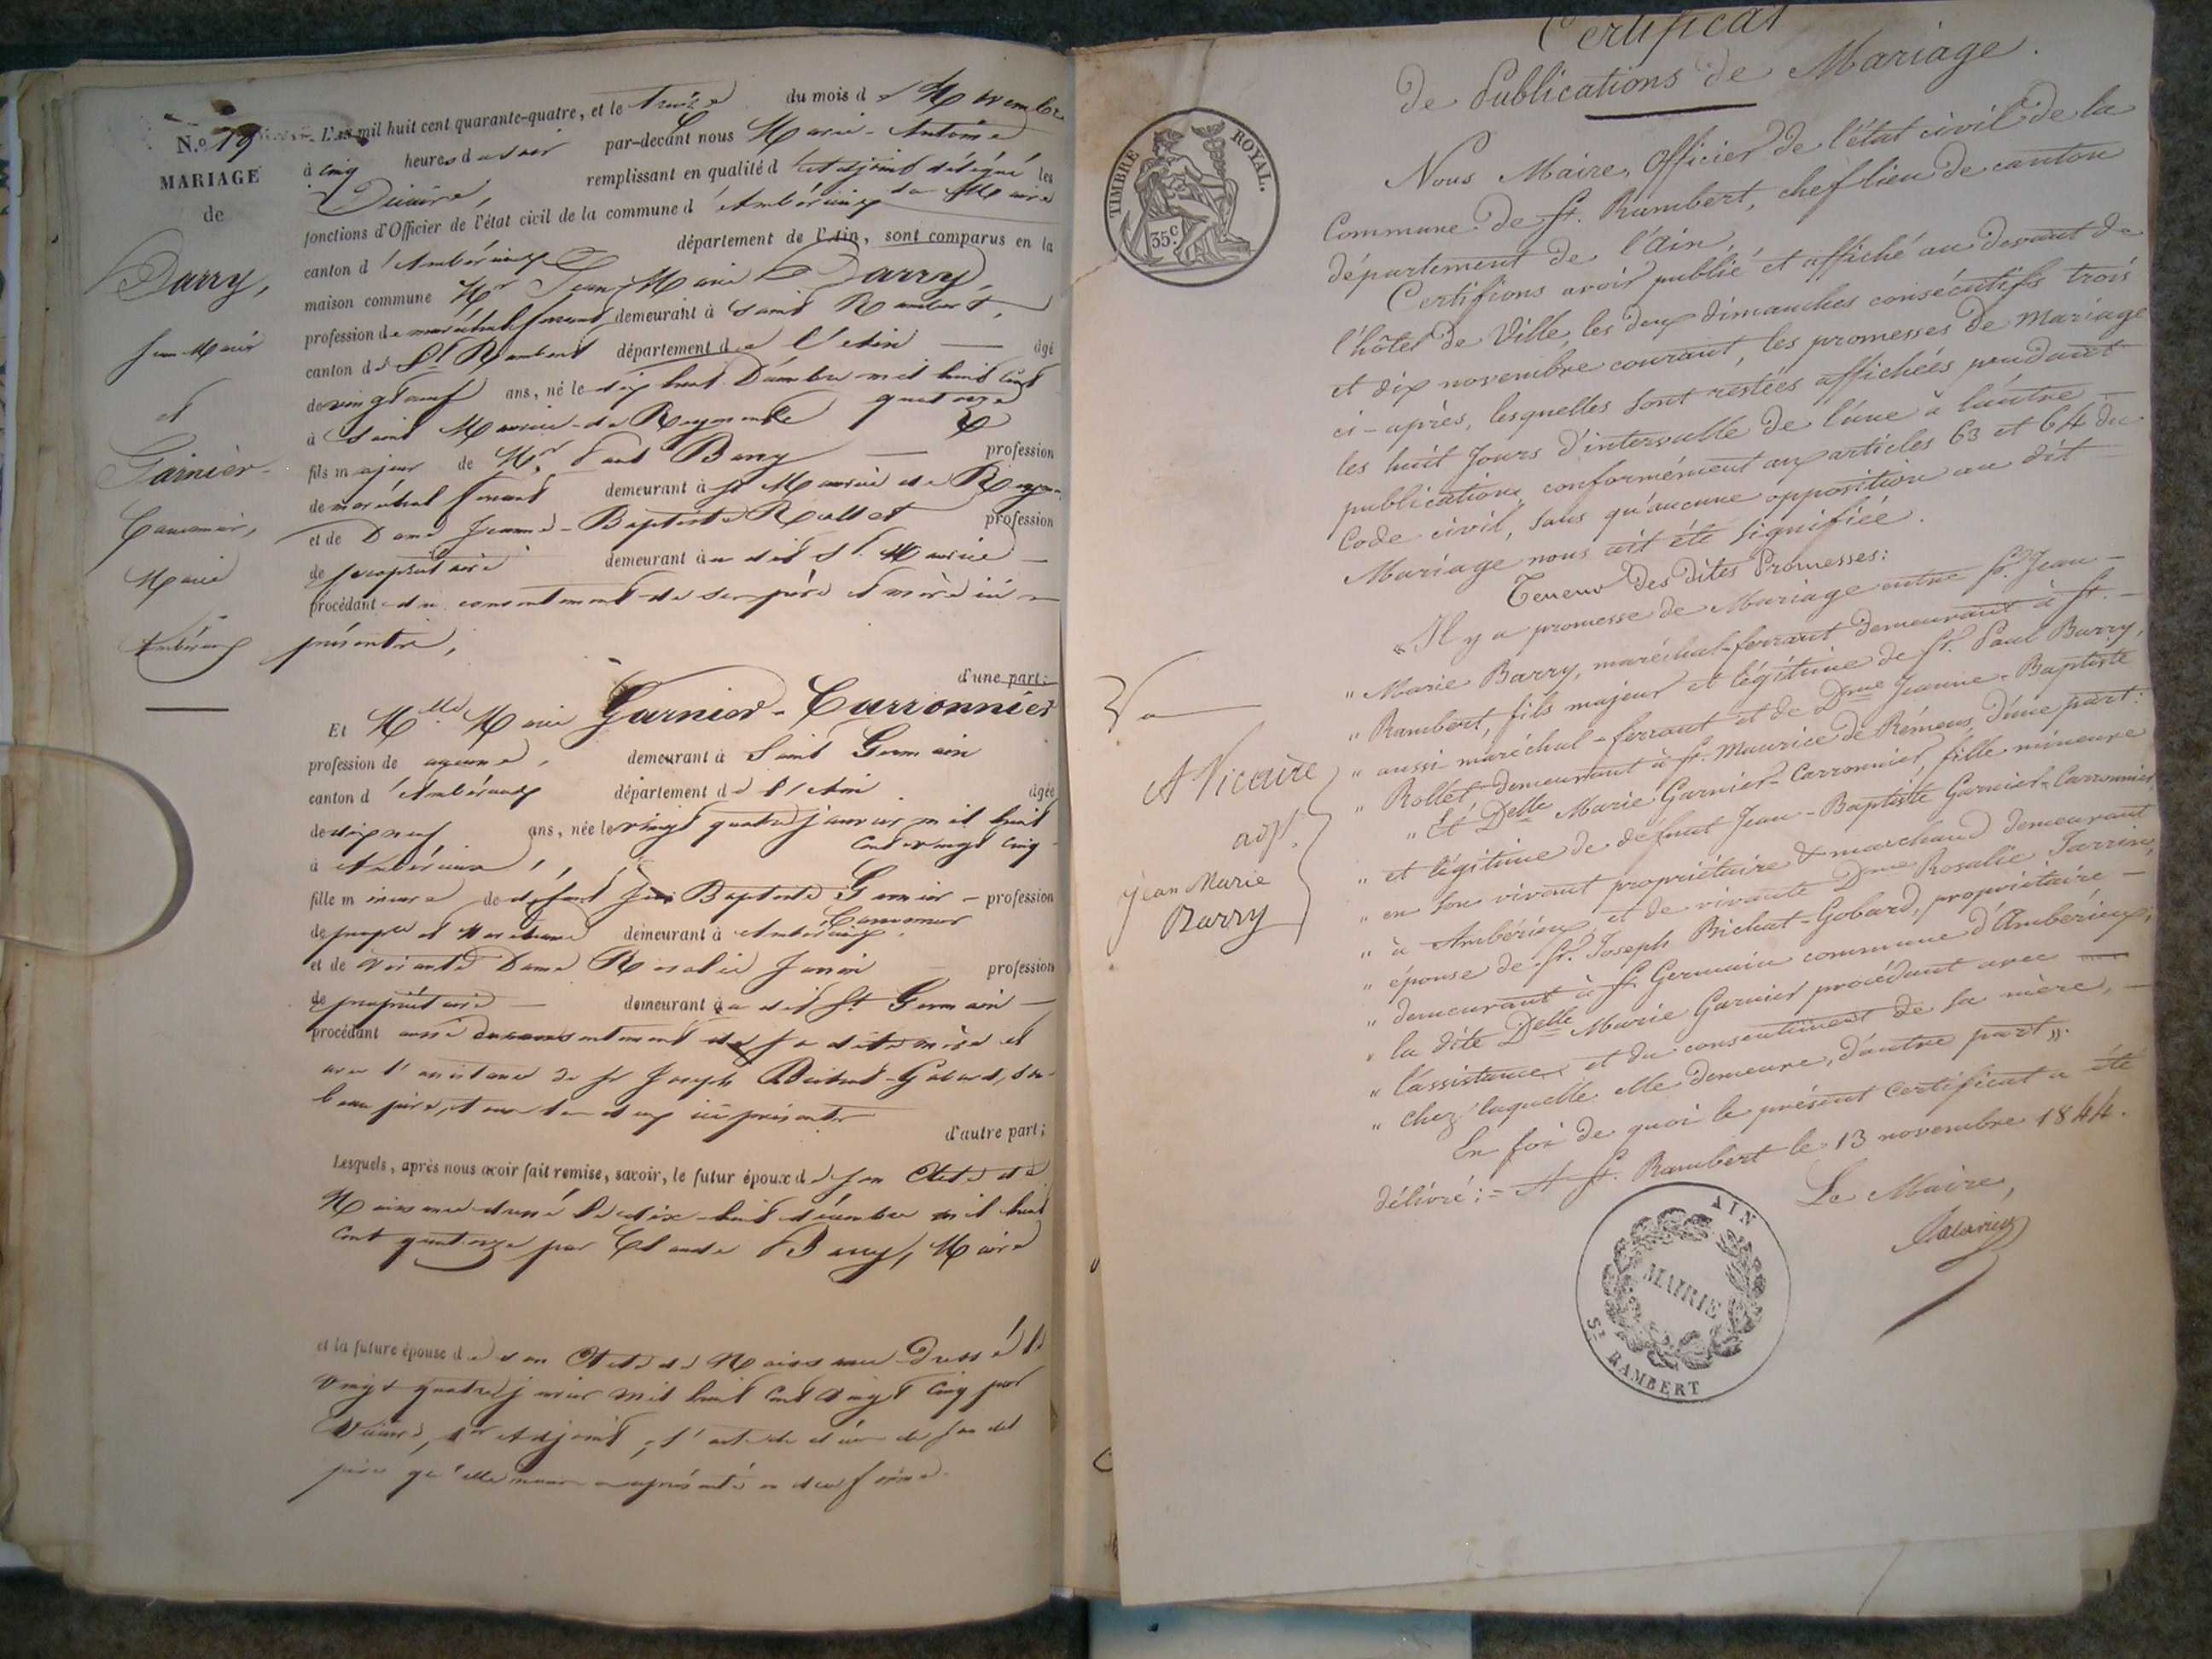 N.º 19
MARIAGE
de
Barry,
Jean Marie
et
Garnier-
Carronnier,
Marie
Ambérieux
L'an mil huit cent quarante-quatre, et le treize du mois de Novembre
à cinq heures du soir par-devant nous Marie-Antoine
remplissant en qualité d'adjoint délégué les
fonctions d'Officier de l'état civil de la commune d'Ambérieux
canton d'Ambérieux département de l'Ain, sont comparus en la
maison commune Mr Jean Marie Barry,
profession de maréchal ferrant demeurant à Saint Rambert,
canton de St Rambert département de l'Ain — âgé
de vingt neuf ans, né le dix huit Décembre mil huit cent
à Saint Maurice de Reymens quatorze
fils majeur de Mr Paul Barry — profession
de maréchal ferrant demeurant à St Maurice de
et de Dame Jeanne-Baptiste Rollet profession
de propriétaire demeurant au dit St Maurice —
procédant du consentement de ses père et mère ici
présents,
d'une part;
Et Mlle Marie Garnier-Carronnier
profession de aucune, demeurant à Saint Germain
canton d'Ambérieux département de l'Ain âgée
de dix neuf ans, née le vingt quatre janvier mil huit
cent vingt cinq
à Ambérieux
fille mineure de défunt Jean Baptiste Garnier — profession
Carronnier
de propre et Marchand demeurant à Ambérieux
et de vivante Dame Rosalie Jarrin profession
de propriétaire — demeurant au dit St Germain —
procédant aussi du consentement de sa dite mère et
avec l'assistance de Sr Joseph Bichat-Gobard, son
beau père, et tous deux ici présents
d'autre part;
Lesquels, après nous avoir fait remise, savoir, le futur époux de son Acte de
Naissance dressé le dix-huit décembre mil huit
cent quatorze par Claude Barry, Maire
et la future épouse de son Acte de Naissance Dressé le
vingt quatre janvier mil huit cent vingt cinq par
adjoint, l'acte de décès de son dit
père qu'elle nous a représenté en due forme.
Certificat
de Publications de Mariage.
TIMBRE ROYAL.
35.c
Nous Maire, Officier de l'état civil de la
Commune de St. Rambert, chef lieu de canton
département de l'Ain,
Certifions avoir publié et affiché au devant de
l'hôtel de Ville, les deux dimanches consécutifs trois
et dix novembre courant, les promesses de mariage
ci-après, lesquelles sont restées affichées pendant
les huit jours d'intervalle de l'une à l'autre
publication, conformément aux articles 63 et 64 du
Code civil, sans qu'aucune opposition au dit
Mariage nous ait été signifiée.
Teneur des dites Promesses:
" Il y a promesse de Mariage entre Sr. Jean-
" Marie Barry, maréchal-ferrant demeurant à St.-
" Rambert, fils majeur et légitime de Sr. Paul Barry,
" aussi maréchal-ferrant et de Dme Jeanne-Baptiste
" Rollet demeurant à St. Maurice de Rémens, d'une part:
" Et Delle Marie Garnier-Carronnier, fille mineure
" et légitime de défunt Jean-Baptiste Garnier-Carronnier,
" en son vivant propriétaire & marchand demeurant
" à Ambérieux, et de vivante Dme Rosalie Jarrin,
" épouse de Sr. Joseph Bichat-Gobard, propriétaire —
" demeurant à St Germain commune d'Ambérieux;
" la dite Delle Marie Garnier procédant avec
" l'assistance et du consentement de sa mère, —
" chez laquelle elle demeure, d'autre part ".
En foi de quoi le présent certificat a été
délivré:= A St. Rambert le 13 novembre 1844.
Le Maire,
Vu
A Vicaire
adjt.
Jean Marie
Barry
AIN
MAIRIE
ST RAMBERT